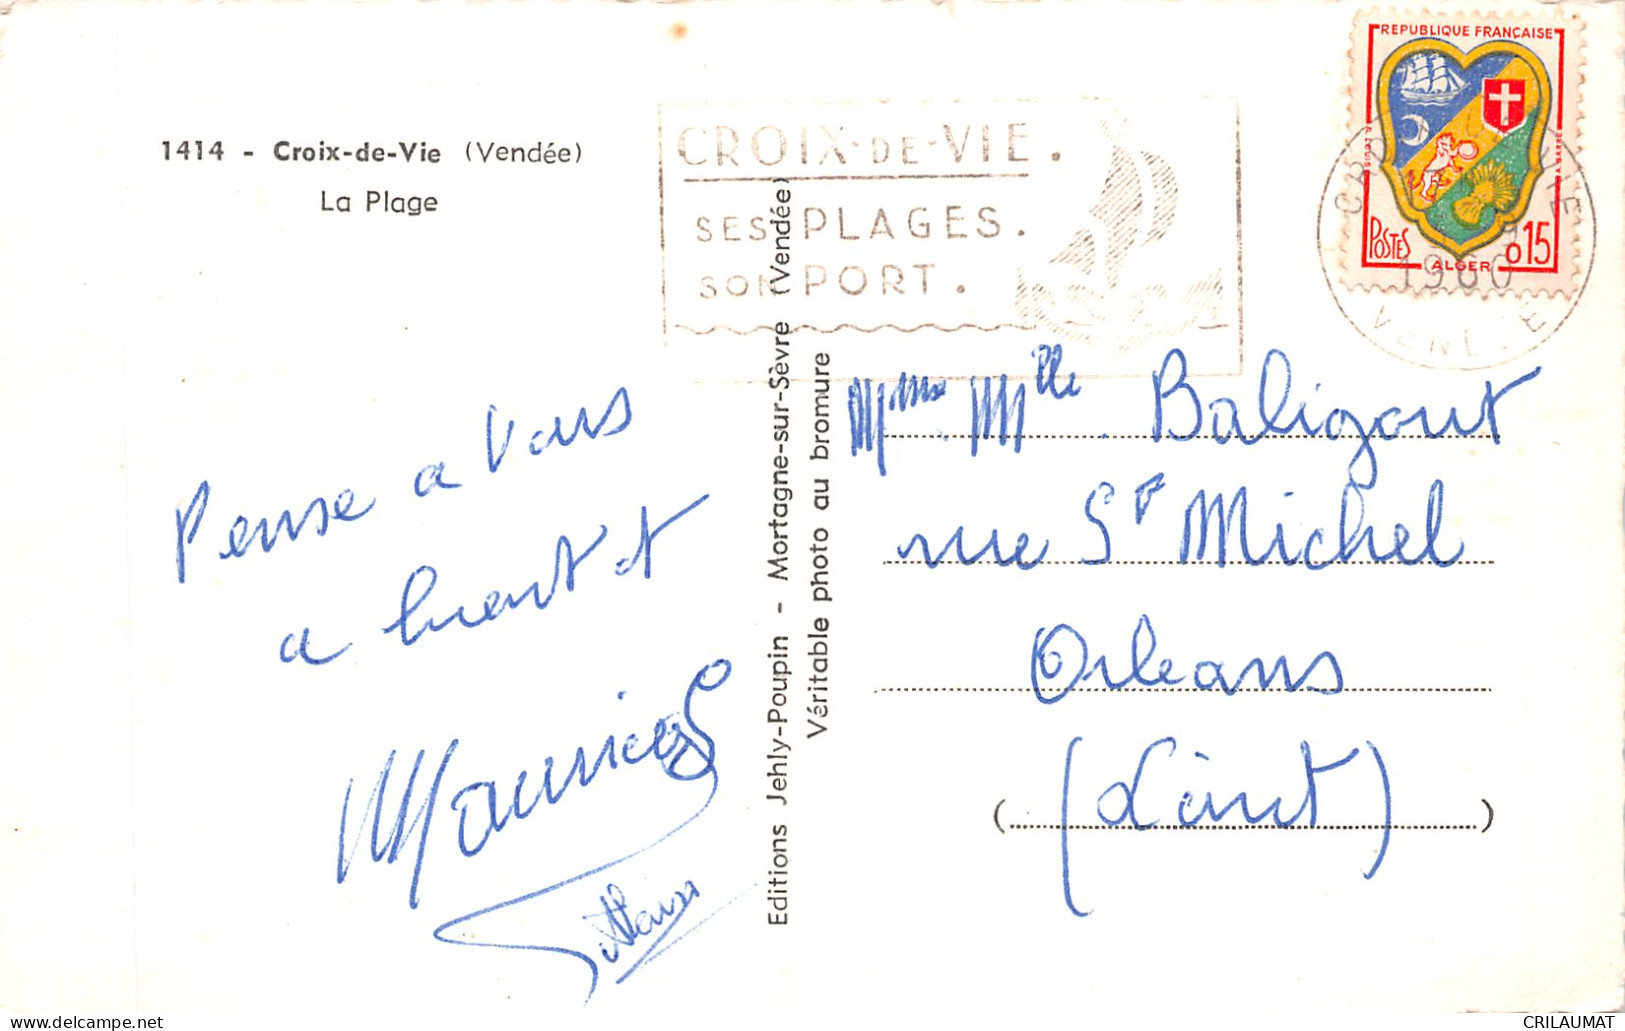 1414 - Croix-de-Vie (Vendée)
La Plage
CROIX-DE-VIE.
SES PLAGES.
SON PORT.
REPUBLIQUE FRANÇAISE
POSTES
ALGER
0,15
1960
Pense a Vous
a bientot
Maurice
Editions Jehly-Poupin - Mortagne-sur-Sèvre (Vendée)
Véritable photo au bromure
Mme Mlle Baligout
rue St Michel
Orleans
(Loiret)
delcampe.net
CRILAUMAT